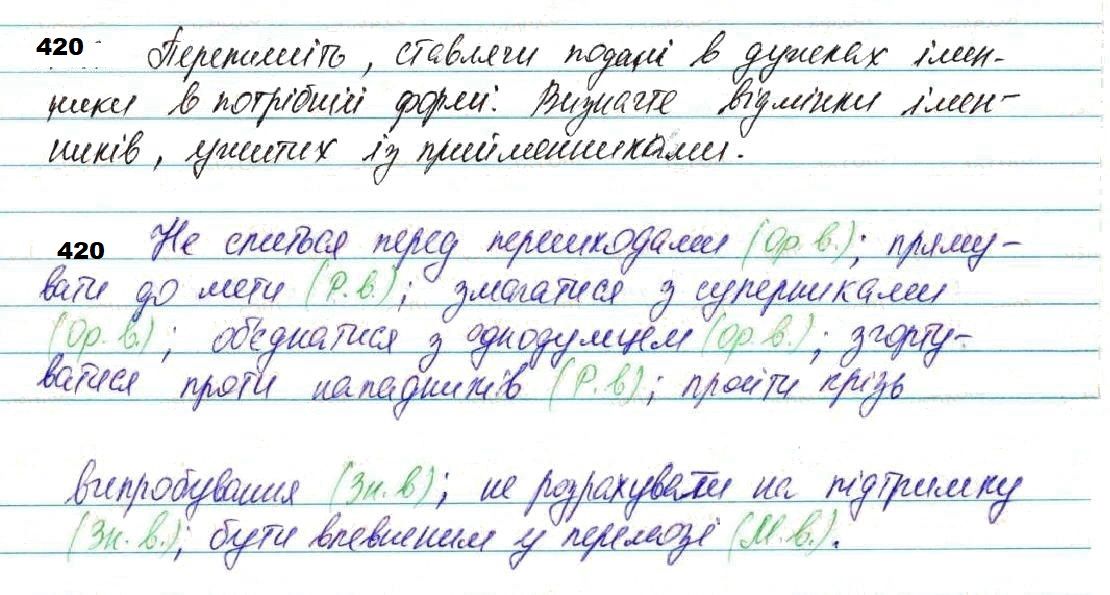 420 Перепишіть, ставлячи подані в дужках імен-
ники в потрібній формі. Визначте відмінки імен-
ників, ужитих із прийменниками.
420 Не спиться перед перешкодами (Ор. в.); пряму-
вати до мети (Р. в.); змагатися з суперниками
(Ор. в.); об'єднатися з однодумцем (Ор. в.); згорту-
ватися проти нападників (Р. в); пройти крізь
випробування (Зн. в); не розрахувати на підтримку
(Зн. в.); бути впевненим у перемозі (М. в.).